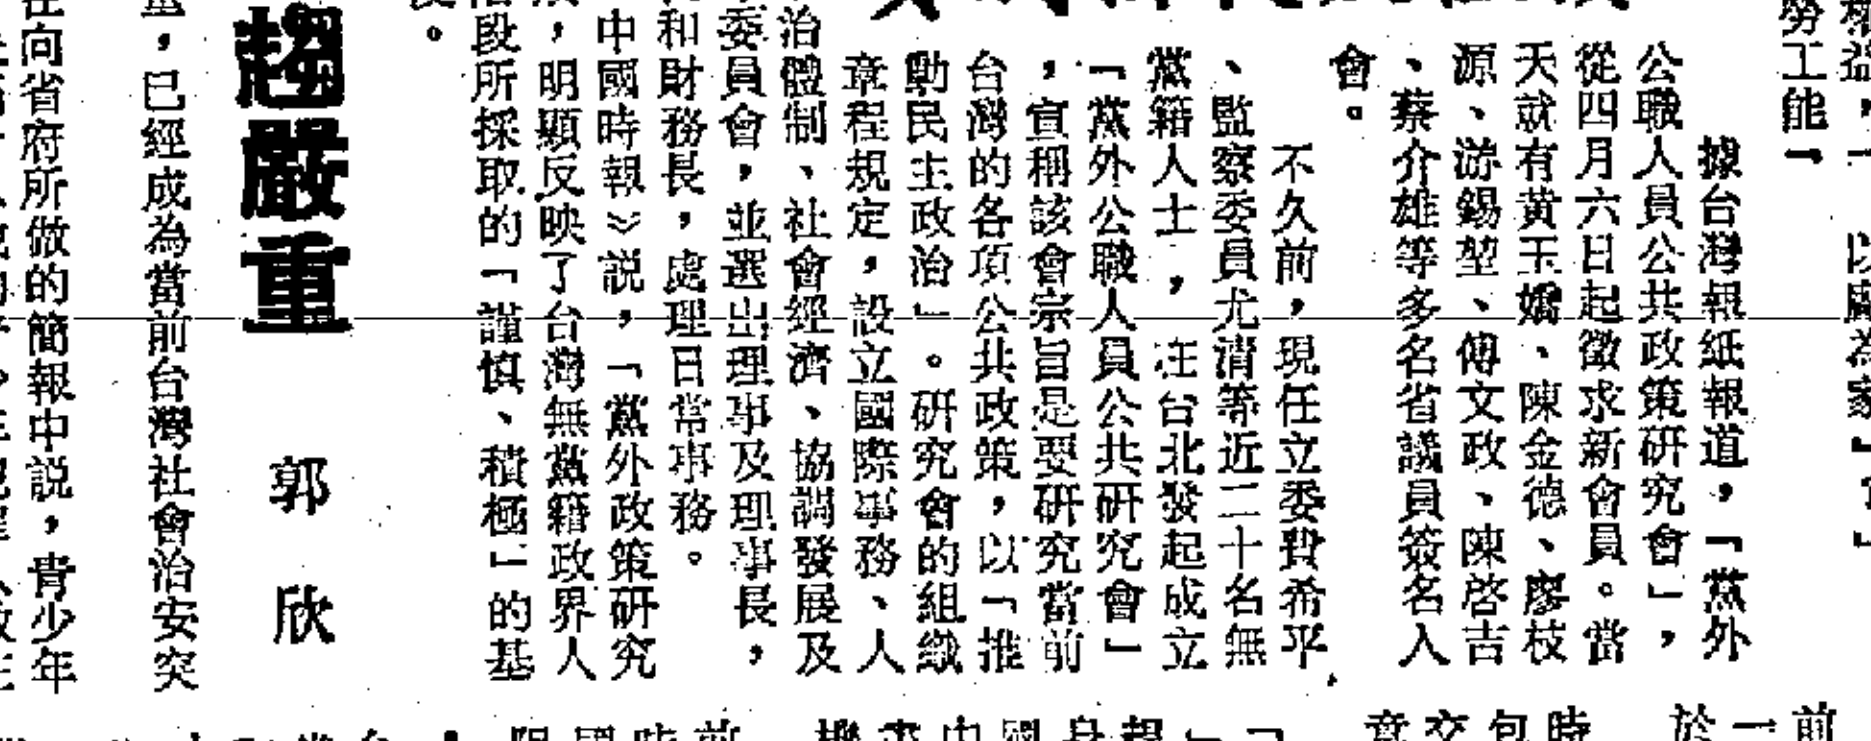 勞工能
據台灣報紙報道，「黨外
公職人員公共政策研究會」，
從四月六日起徵求新會員。當
天就有黃玉嬌、陳金德、廖枝
源、游錫堃、傅文政、陳啓吉
、蔡介雄等多名省議員簽名入
會。
不久前，現任立委費希平
、監察委員尤清等近二十名無
黨籍人士，在台北發起成立
「黨外公職人員公共研究會」
，宣稱該會宗旨是要研究當前
台灣的各項公共政策，以「推
動民主政治」。研究會的組織
章程規定，設立國際事務、人
治體制、社會經濟、協調發展及
委員會，並選出理事及理事長，
和財務長，處理日常事務。
中國時報》説，「黨外政策研究
，明顯反映了台灣無黨籍政界人
段所採取的「謹慎、積極」的基
。
趨嚴重
郭欣
，已經成為當前台灣社會治安突
向省府所做的簡報中説，青少年